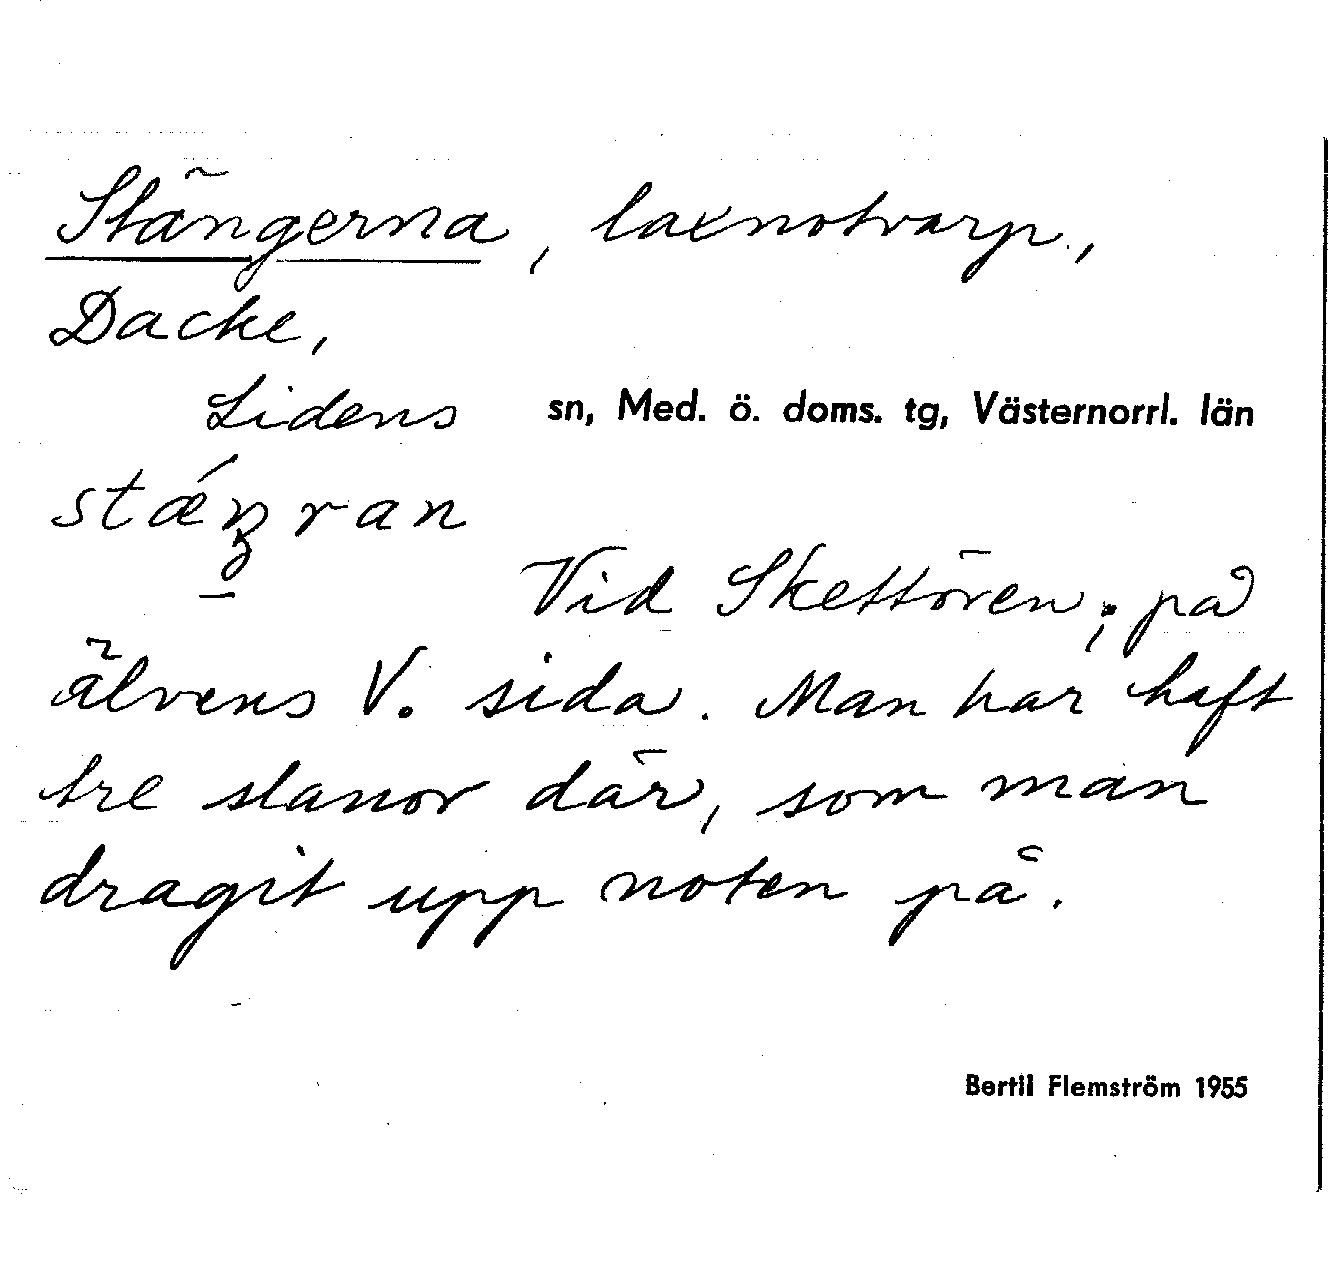 Stängerna, laxnotvarp.,
Dacke,
Lidens sn, Med. ö. doms. tg, Västernorrl. län
stǽŋran
Vid Skettören; på
älvens V. sida. Man har haft
tre slanor där, som man
dragit upp noten på.
Bertil Flemström 1955